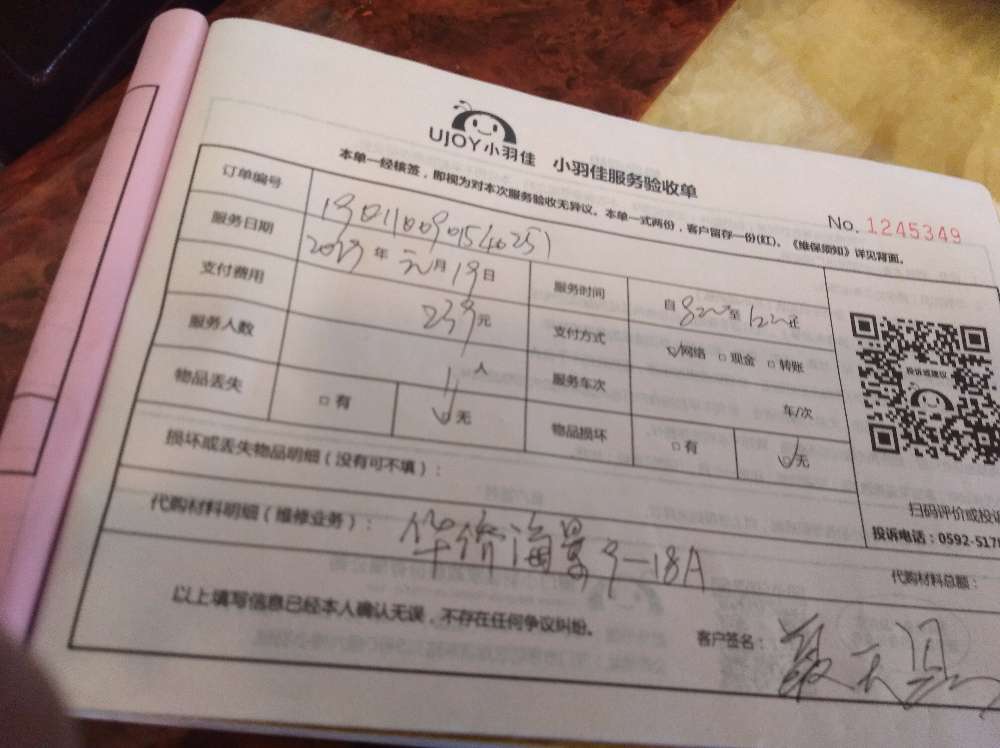 UJOY小羽佳 小羽佳服务验收单
本单一经核签，即视为对本次服务验收无异议。本单一式两份，客户留存一份(红)。《维保须知》详见背面。
No. 1245349
订单编号 1901100901540251
服务日期 年 月19日 服务时间 自 至
支付费用 239元 支付方式 网络 □ 现金 □ 转账
服务人数 1人 服务车次 车/次
物品丢失 □ 有 无 物品损坏 □ 有 □ 无
损坏或丢失物品明细（没有可不填）：
代购材料明细（维修业务）： 华侨海景9-18A
代购材料总额：
以上填写信息已经本人确认无误，不存在任何争议纠纷。
客户签名：
投诉或建议
扫码评价或投诉
投诉电话：0592-517